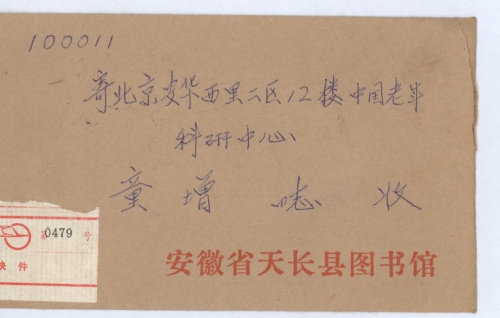 100011
寄北京安华西里二区12楼中国老年
科研中心
童增 收
第0479号
快件
安徽省天长县图书馆